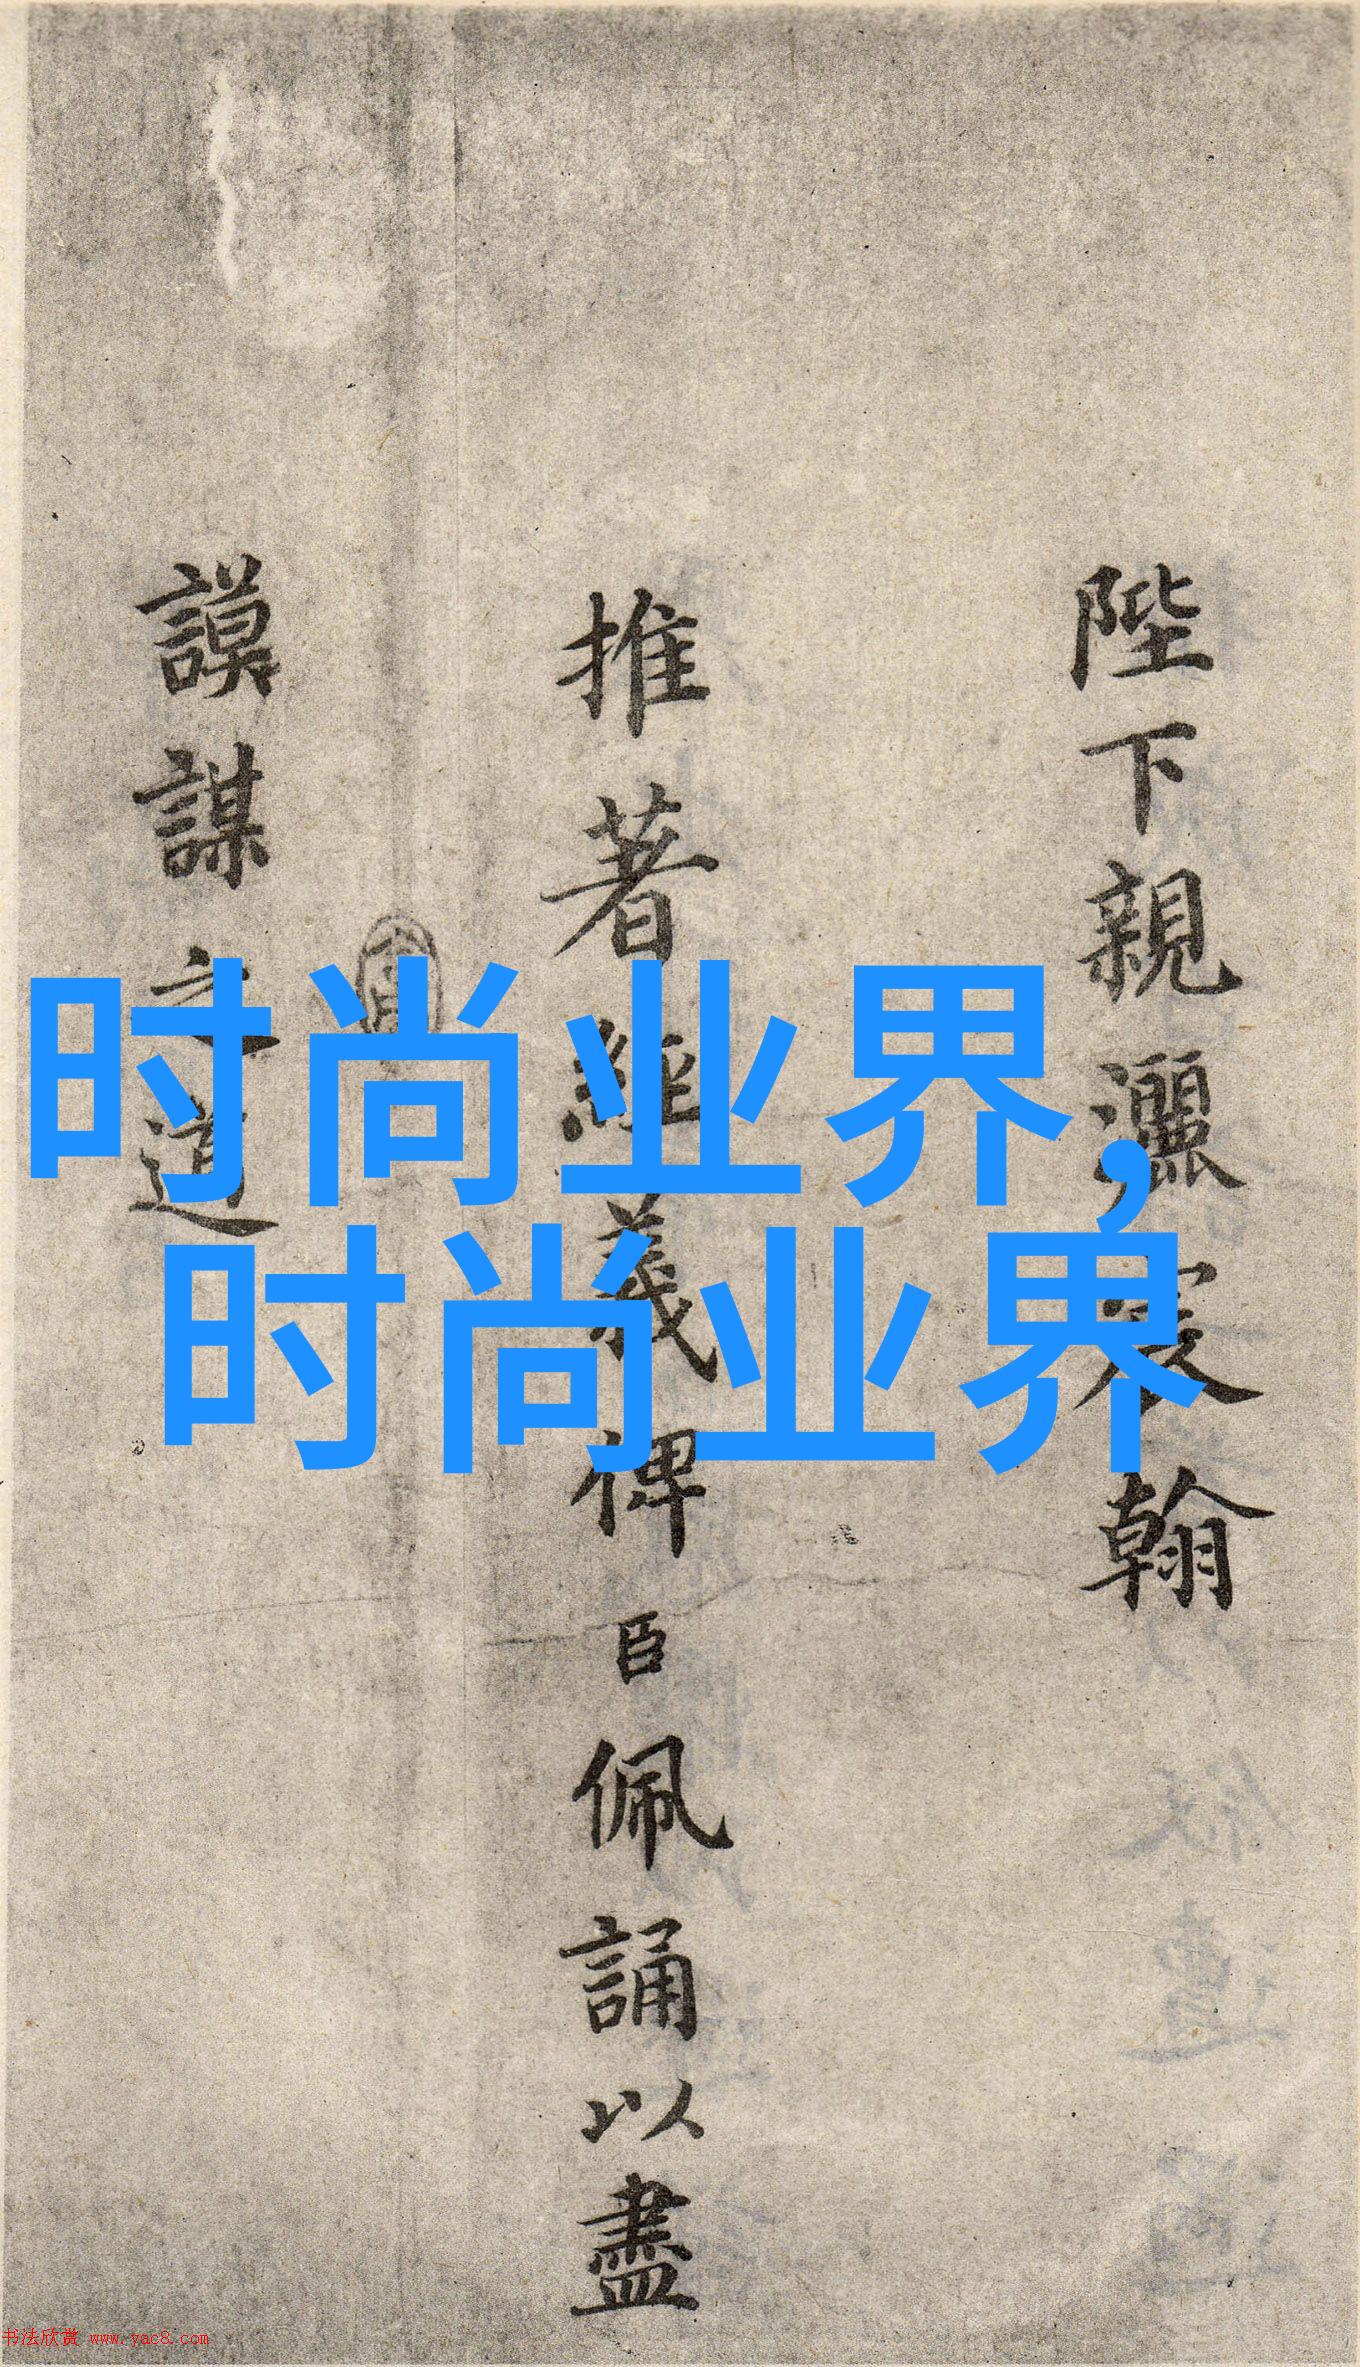 陛下親灑宸翰
推著經義俾臣佩誦以盡
謨謀之道
时尚业界,
时尚业界
书法欣赏 www.yac8.com